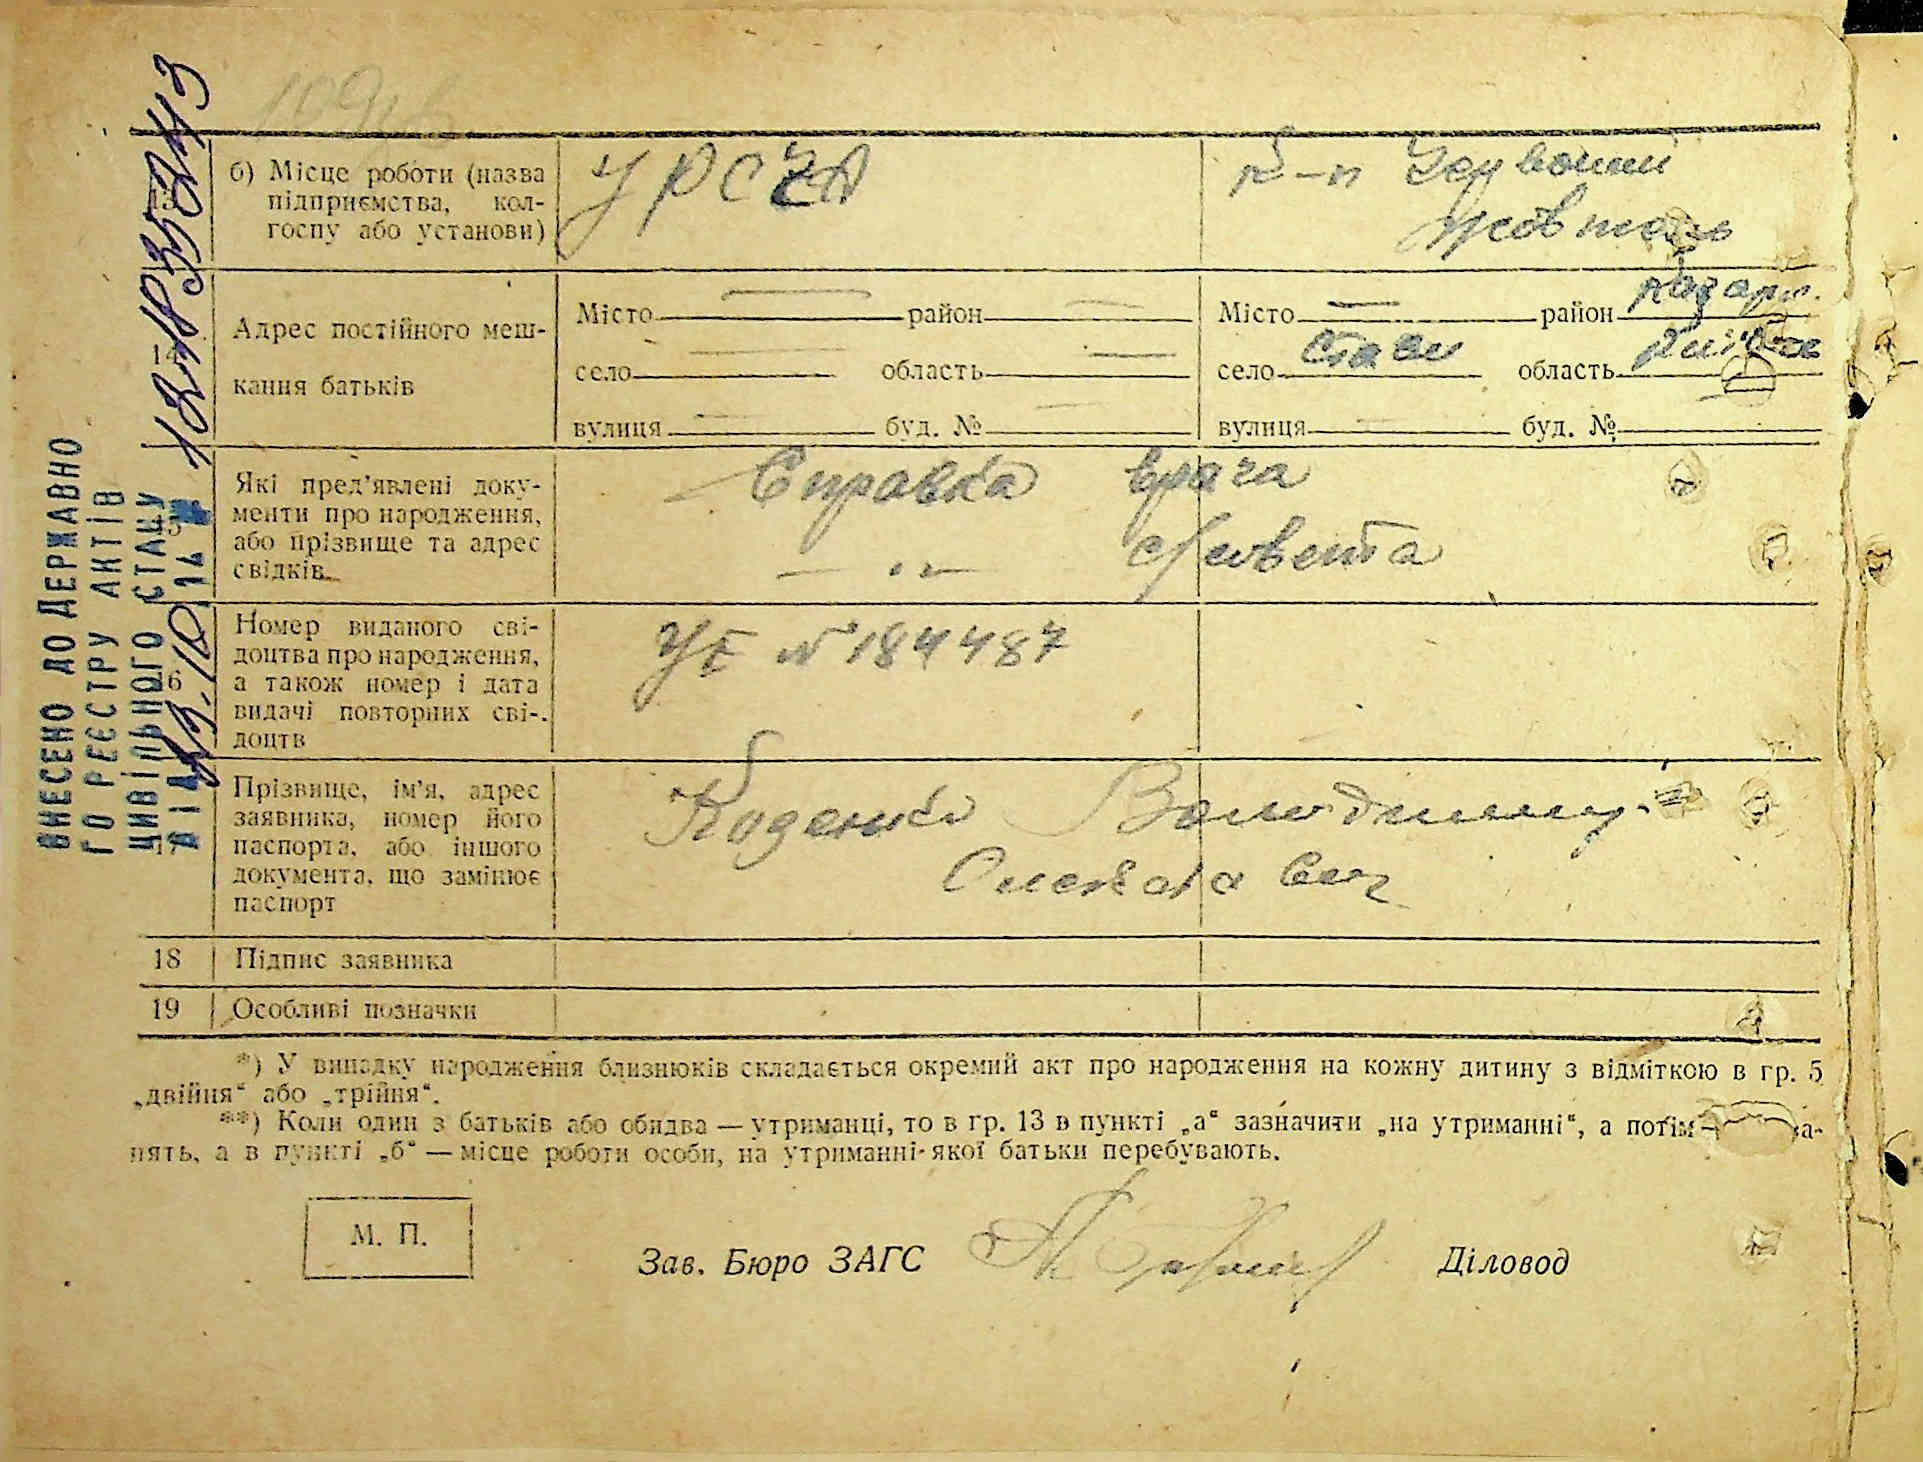 б) Місце роботи (назва
підприємства, кол-
госпу або установи)
к-п Червоний
Жовтень
13
14
Адрес постійного меш-
кання батьків
Місто район
село область
вулиця буд. №
Місто район Кагарл.
село Стави область Київськ
вулиця буд. №
15
Які пред'явлені доку-
менти про народження,
або прізвище та адрес
свідків
Справка врача
— „ — с/совета
16
Номер виданого сві-
доцтва про народження,
а також номер і дата
видачі повторних сві-
доцтв
№ 184487
17
Прізвище, ім'я, адрес
заявника, номер його
паспорта, або іншого
документа, що замінює
паспорт
Володимир
18 Підпис заявника
19 Особливі позначки
*) У випадку народження близнюків складається окремий акт про народження на кожну дитину з відміткою в гр. 5
„двійня“ або „трійня“.
**) Коли один з батьків або обидва — утриманці, то в гр. 13 в пункті „а“ зазначити „на утриманні“, а потім — за-
нять, а в пункті „б“ — місце роботи особи, на утриманні якої батьки перебувають.
М. П.
Зав. Бюро ЗАГС Діловод
ВНЕСЕНО ДО ДЕРЖАВНО
ГО РЕЄСТРУ АКТІВ
ЦИВІЛЬНОГО СТАНУ
ВІД 13.10.14